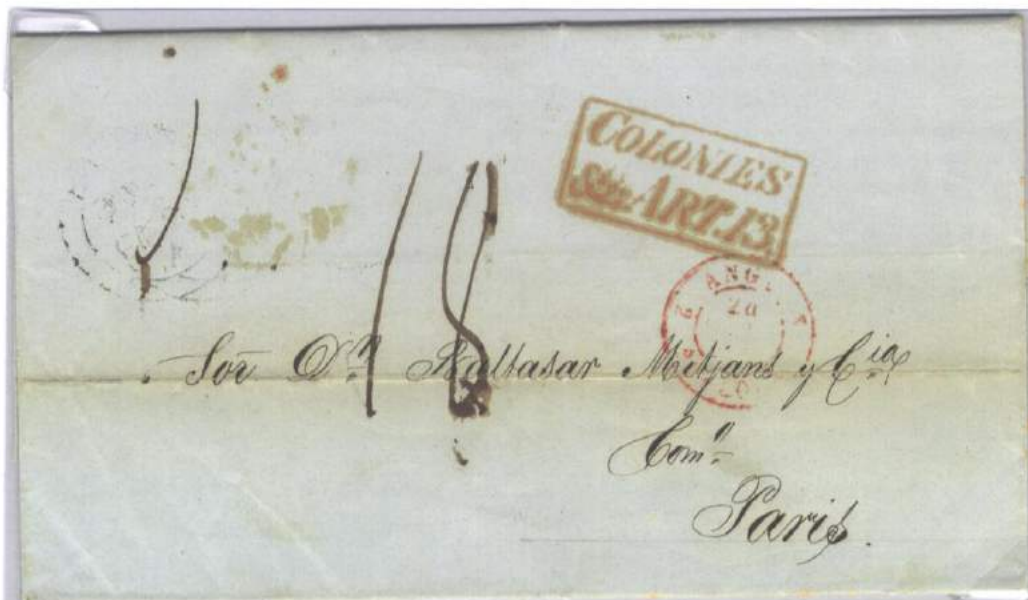 COLONIES
&c. ART. 13.
18
ANG.
2
20
Sor Dn Baltasar Mitjans y Cia
Como
Paris.